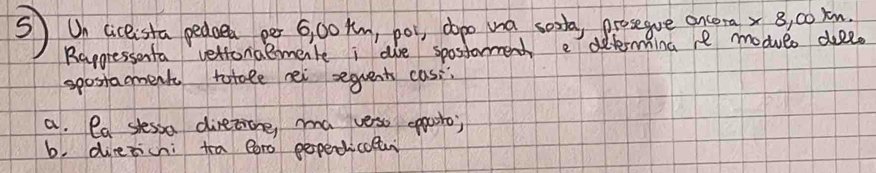 5) Un ciclista pedala per 6,00 km, poi, dopo una sosta, prosegue ancora x 8,00 km.
Rappresenta vettorialmente i due spostamenti e determina il modulo dello
spostamento totale nei seguenti casi:
a. la stessa direzione, ma verso opposto;
b. direzioni tra loro perpendicolari